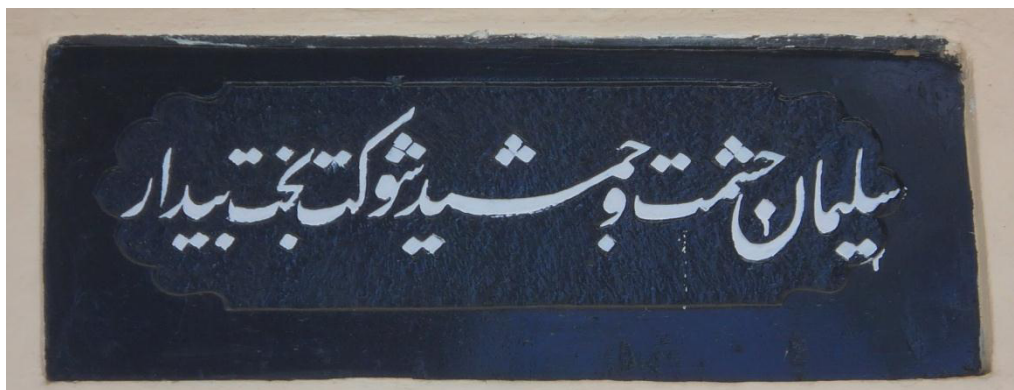 سلیمان حشمت و جمشید شوکت بخت بیدار